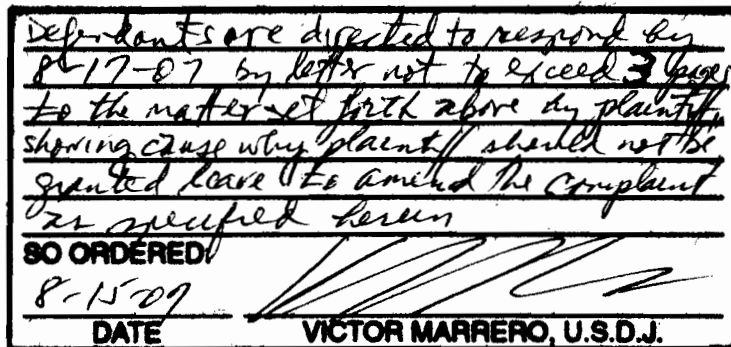 Defendants are directed to respond by
8-17-07 by letter not to exceed 3 pages
to the matter set forth above by plaintiff,
showing cause why plaintiff should not be
granted leave to amend the complaint
as specified herein
SO ORDERED:
8-15-07
DATE VICTOR MARRERO, U.S.D.J.